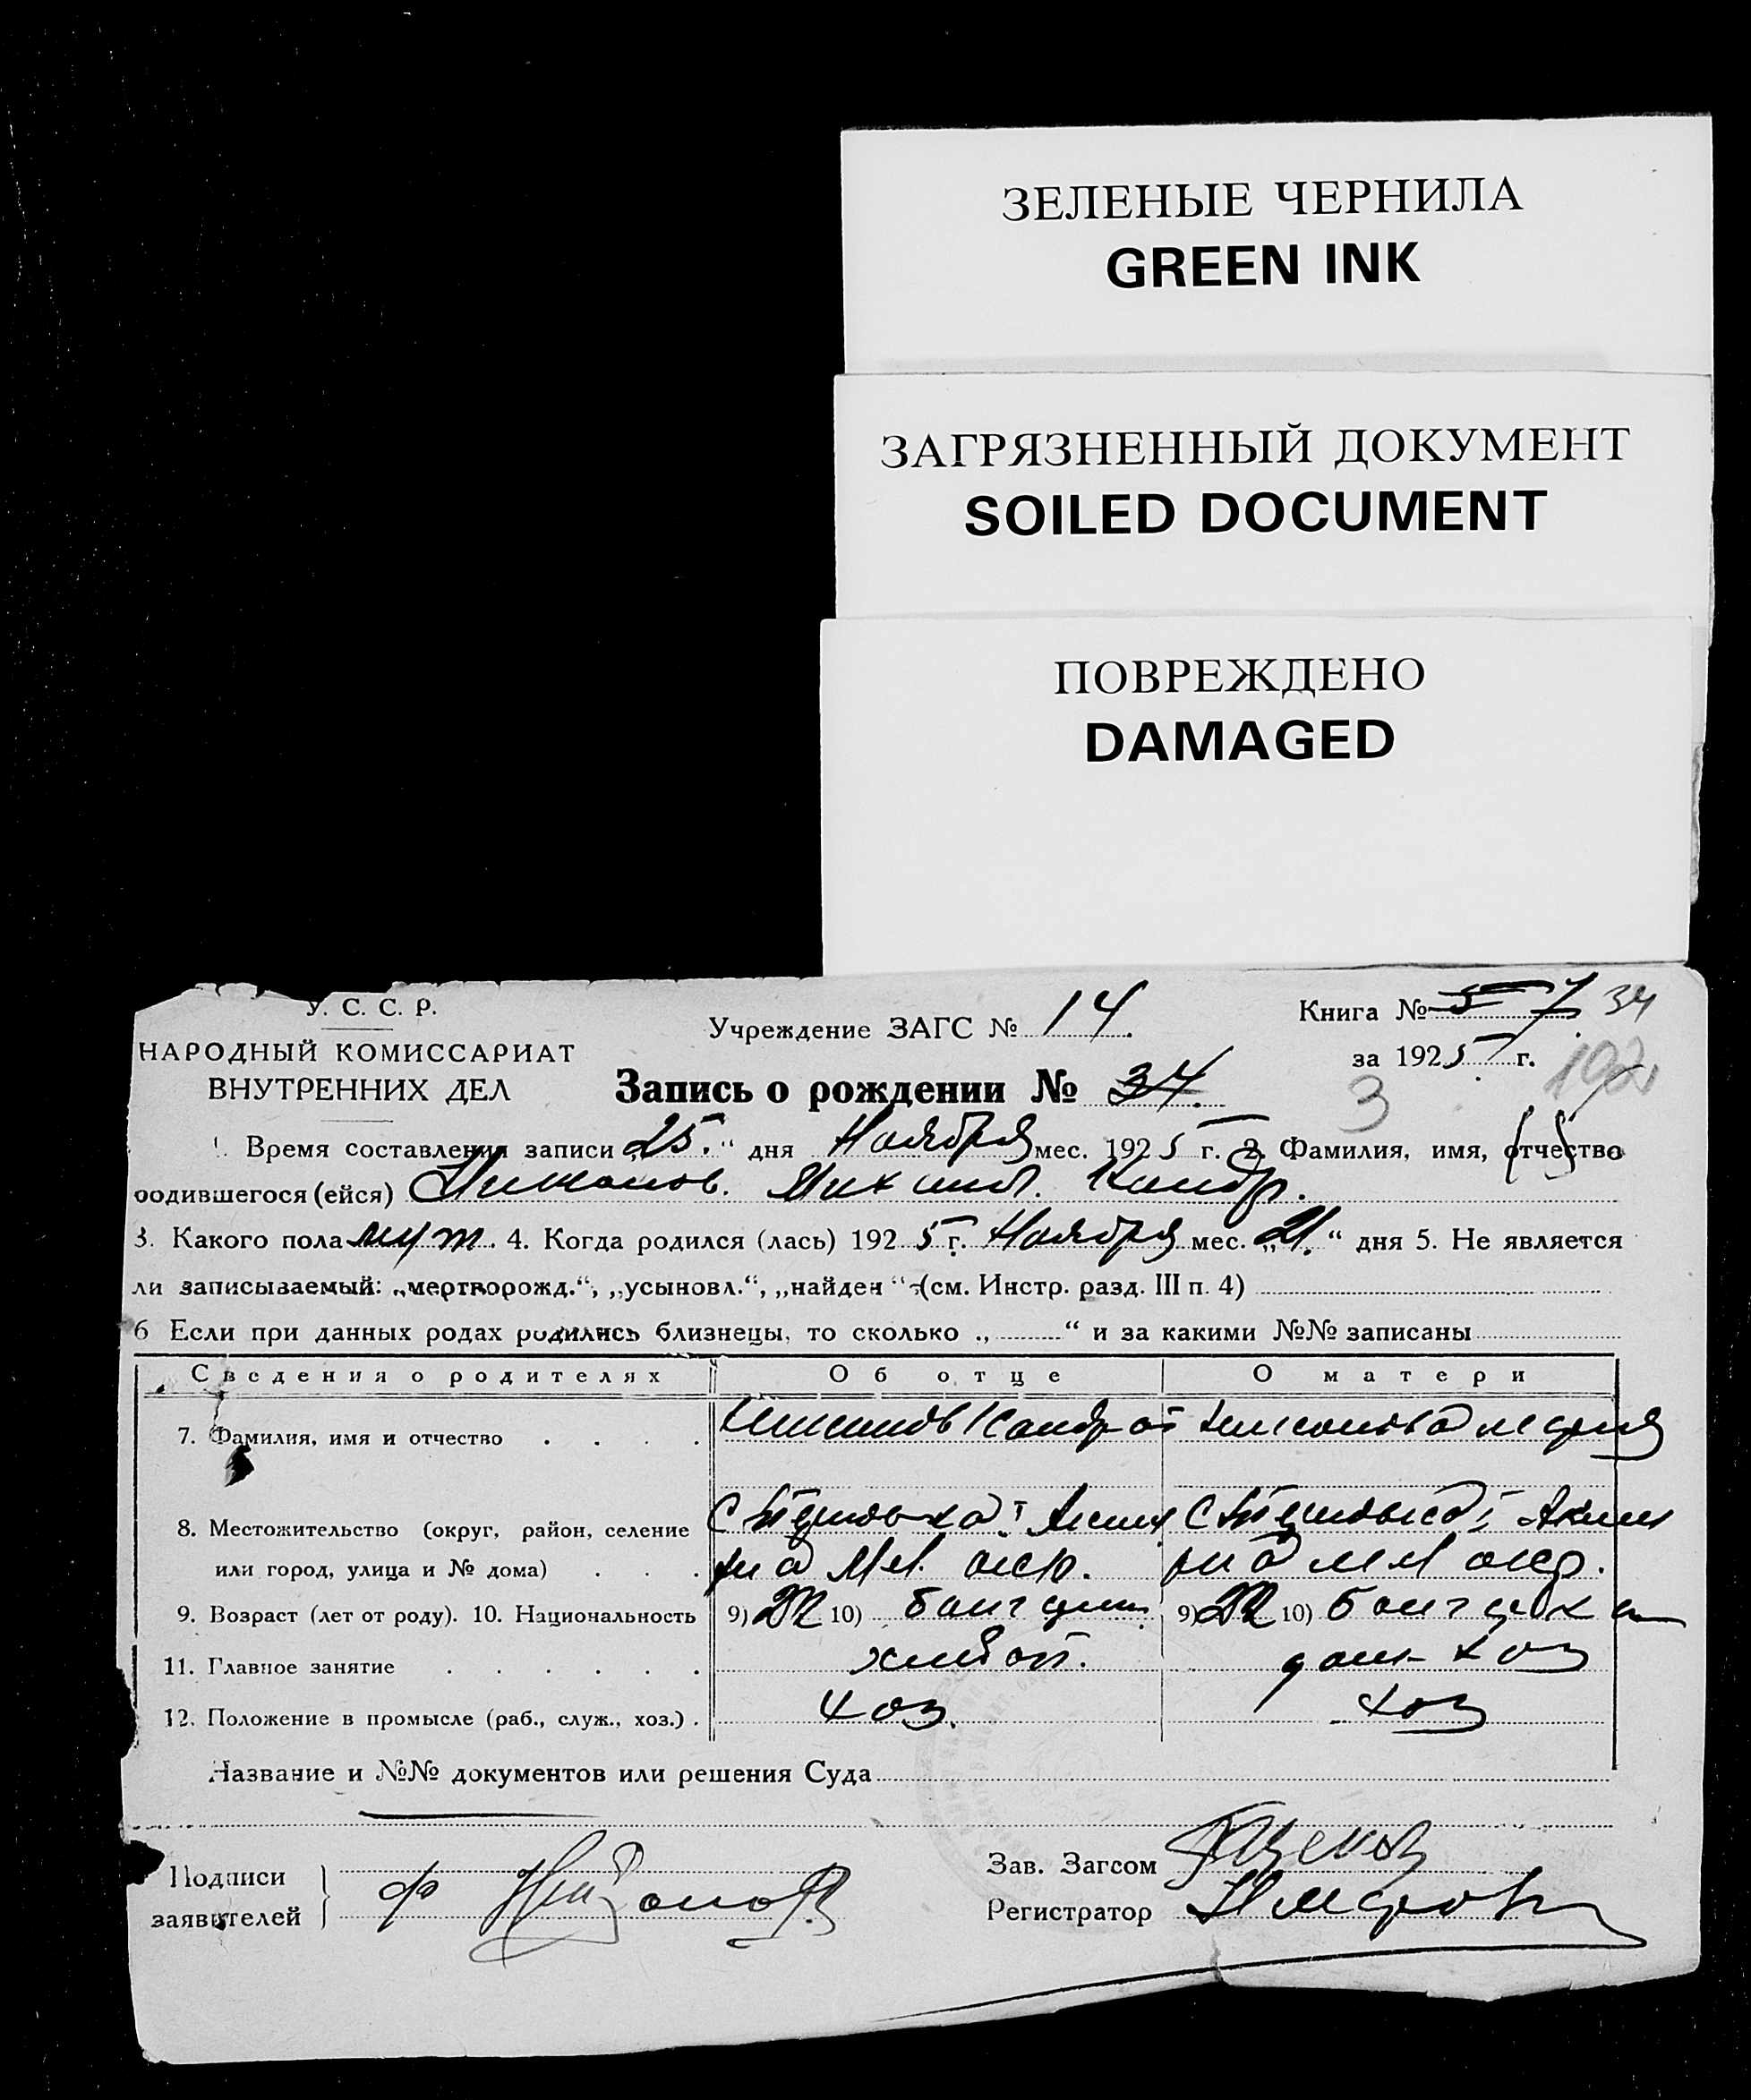 ЗЕЛЕНЫЕ ЧЕРНИЛА
GREEN INK
ЗАГРЯЗНЕННЫЙ ДОКУМЕНТ
SOILED DOCUMENT
ПОВРЕЖДЕНО
DAMAGED
У. С. С. Р.
НАРОДНЫЙ КОМИССАРИАТ
ВНУТРЕННИХ ДЕЛ
Учреждение ЗАГС № 14.
Книга № 57 34
за 1925 г.
Запись о рождении № 34. 3
1. Время составления записи „25.“ дня Ноября мес. 1925 г. 2. Фамилия, имя, отчество
родившегося (ейся) Михаил. Кандр.
3. Какого пола муж. 4. Когда родился (лась) 1925 г. Ноября мес. „21.“ дня 5. Не является
ли записываемый: „мертворожд.“, „усыновл.“, „найден“ (см. Инстр. разд. III п. 4)
6 Если при данных родах родились близнецы, то сколько „ “ и за какими №№ записаны
Сведения о родителях Об отце О матери
7. Фамилия, имя и отчество Кандрат
8. Местожительство (округ, район, селение
или город, улица и № дома) . . . Мл. окр. мл окр.
9. Возраст (лет от роду). 10. Национальность 9) 10) 9) 10)
11. Главное занятие хлебоп. дом. хоз
12. Положение в промысле (раб., служ., хоз.) . хоз. хоз
Название и №№ документов или решения Суда
Подписи
заявителей
Зав. Загсом
Регистратор